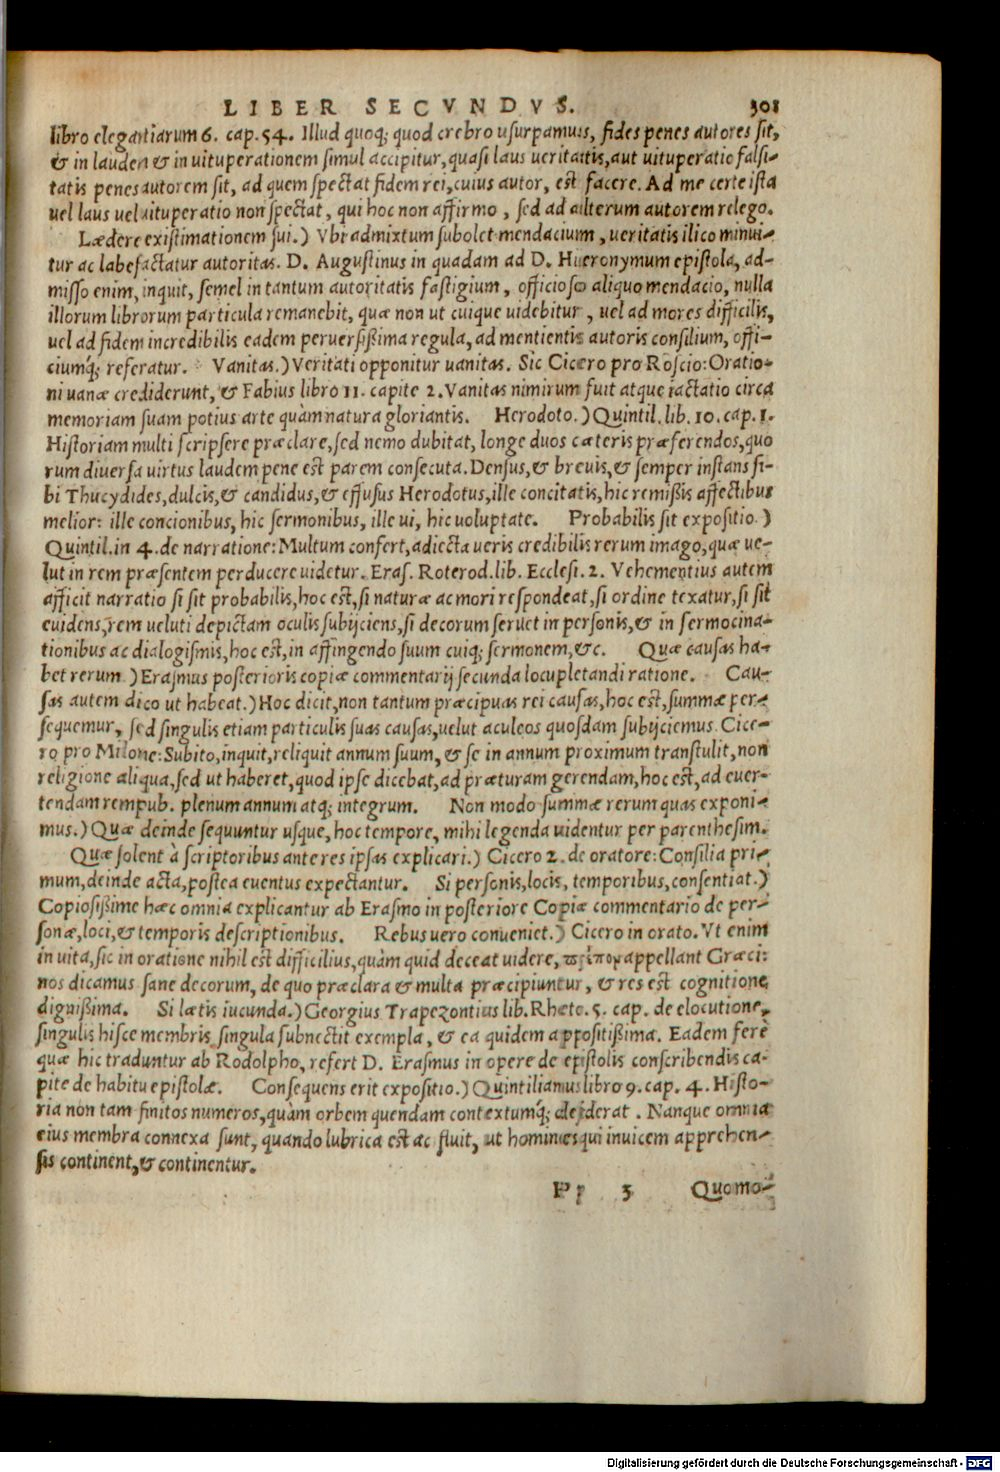 LIBER SECVNDVS. 301
libro elegantiarum 6. cap. 54. Illud quoq; quod crebro usurpamus, fides penes autores sit,
& in laudem & in uituperationem simul accipitur, quasi laus ueritatis, aut uituperatio falsi-
tatis penes autorem sit, ad quem spectat fidem rei, cuius autor, est facere. Ad me certe ista
uel laus uel uituperatio non spectat, qui hoc non affirmo, sed ad alterum autorem relego.
Lædere existimationem sui.) Vbi admixtum subolet mendacium, ueritatis ilico minui-
tur ac labefactatur autoritas. D. Augustinus in quadam ad D. Hieronymum epistola, ad-
misso enim, inquit, semel in tantum autoritatis fastigium, officioso aliquo mendacio, nulla
illorum librorum particula remanebit, quæ non ut cuique uidebitur, uel ad mores difficilis,
uel ad fidem incredibilis eadem peruersißima regula, ad mentientis autoris consilium, offi-
ciumq; referatur. Vanitas.) Veritati opponitur uanitas. Sic Cicero pro Roscio: Oratio-
ni uanæ crediderunt, & Fabius libro 11. capite 2. Vanitas nimirum fuit atque iactatio circa
memoriam suam potius arte quàm natura gloriantis. Herodoto.) Quintil. lib. 10. cap. 1.
Historiam multi scripsere præclare, sed nemo dubitat, longe duos cæteris præferendos, quo
rum diuersa uirtus laudem pene est parem consecuta. Densus, & breuis, & semper instans si-
bi Thucydides, dulcis, & candidus, & effusus Herodotus, ille concitatis, hic remißis affectibus
melior: ille concionibus, hic sermonibus, ille ui, hic uoluptate. Probabilis sit expositio.)
Quintil. in 4. de narratione: Multum confert, adiecta ueris credibilis rerum imago, quæ ue-
lut in rem præsentem perducere uidetur. Eras. Roterod. lib. Ecclesi. 2. Vehementius autem
afficit narratio si sit probabilis, hoc est, si naturæ ac mori respondeat, si ordine texatur, si sit
euidens, rem ueluti depictam oculis subijciens, si decorum seruet in personis, & in sermocina-
tionibus ac dialogismis, hoc est, in affingendo suum cuiq; sermonem, &c. Quæ causas ha-
bet rerum.) Erasmus posterioris copiæ commentarij secunda locupletandi ratione. Cau-
sas autem dico ut habeat.) Hoc dicit, non tantum præcipuas rei causas, hoc est, summæ per-
sequemur, sed singulis etiam particulis suas causas, uelut aculeos quosdam subijciemus. Cice-
ro pro Milone: Subito, inquit, reliquit annum suum, & se in annum proximum transtulit, non
religione aliqua, sed ut haberet, quod ipse dicebat, ad præturam gerendam, hoc est, ad euer-
tendam rempub. plenum annum atq; integrum. Non modo summæ rerum quas exponi-
mus.) Quæ deinde sequuntur usque, hoc tempore, mihi legenda uidentur per parenthesim.
Quæ solent à scriptoribus ante res ipsas explicari.) Cicero 2. de oratore: Consilia pri-
mum, deinde acta, postea euentus expectantur. Si personis, locis, temporibus, consentiat.)
Copiosißime hæc omnia explicantur ab Erasmo in posteriore Copiæ commentario de per-
sonæ, loci, & temporis descriptionibus. Rebus uero conueniet.) Cicero in orato. Vt enim
in uita, sic in oratione nihil est difficilius, quàm quid deceat uidere, πρέπον appellant Græci:
nos dicamus sane decorum, de quo præclara & multa præcipiuntur, & res est cognitione
dignißima. Si lætis iucunda.) Georgius Trapezontius lib. Rheto. 5. cap. de elocutione,
singulis hisce membris singula subnectit exempla, & ea quidem appositißima. Eadem fere
quæ hic traduntur ab Rodolpho, refert D. Erasmus in opere de epistolis conscribendis ca-
pite de habitu epistolæ. Consequens erit expositio.) Quintilianus libro 9. cap. 4. Histo-
ria non tam finitos numeros, quàm orbem quendam contextumq; desiderat. Nanque omnia
eius membra connexa sunt, quando lubrica est ac fluit, ut homines qui inuicem apprehen-
sis continent, & continentur.
Pp 3 Quomo-
Digitalisierung gefördert durch die Deutsche Forschungsgemeinschaft - DFG